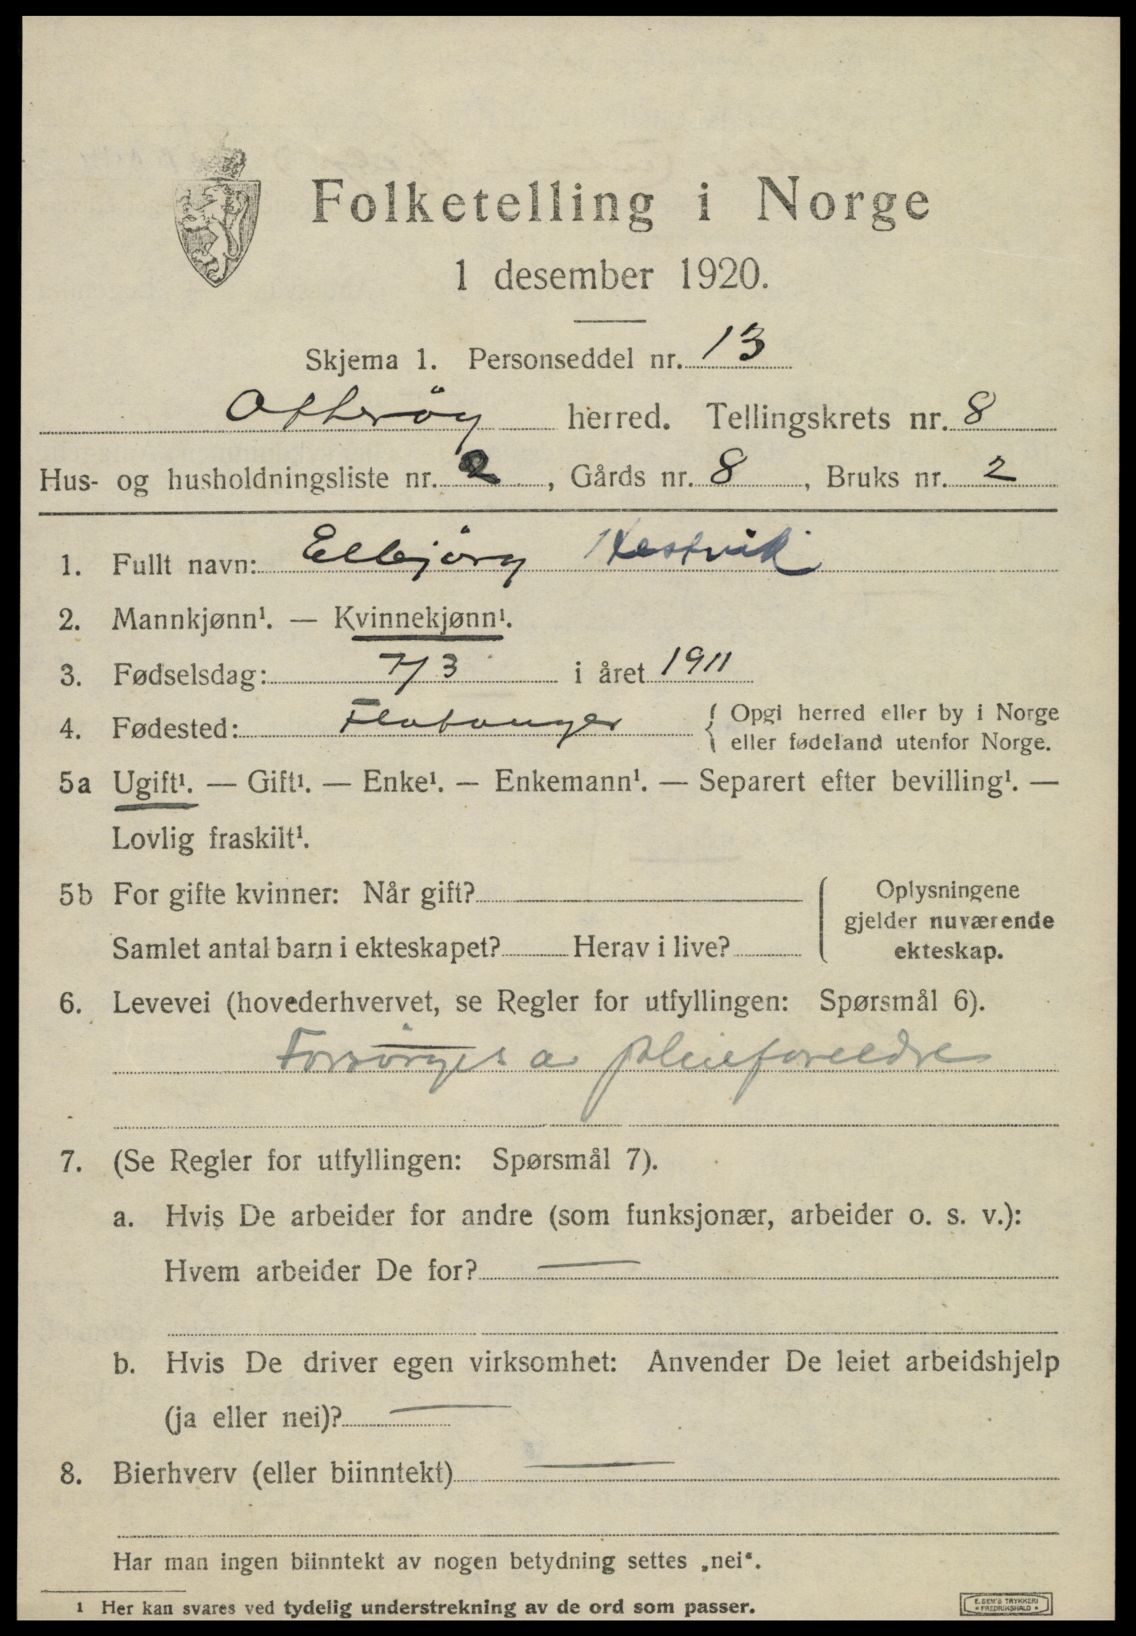 Folketelling i Norge
1 desember 1920.
Skjema 1. Personseddel nr. 13
Otterøy herred. Tellingskrets nr. 8
Hus- og husholdningsliste nr. 2, Gårds nr. 8, Bruks nr. 2
1. Fullt navn: Elbjörg Hestvik
2. Mannkjønn¹. — Kvinnekjønn¹.
3. Fødselsdag: 7/3 i året 1911
4. Fødested: Flatanger { Opgi herred eller by i Norge
eller fødeland utenfor Norge.
5a Ugift¹. — Gift¹. — Enke¹. — Enkemann¹. — Separert efter bevilling¹. —
Lovlig fraskilt¹.
5b For gifte kvinner: Når gift?
Samlet antal barn i ekteskapet? Herav i live?
Oplysningene
gjelder nuværende
ekteskap.
6. Levevei (hovederhvervet, se Regler for utfyllingen: Spørsmål 6).
Forsörges a pleieforeldre
7. (Se Regler for utfyllingen: Spørsmål 7).
a. Hvis De arbeider for andre (som funksjonær, arbeider o. s. v.):
Hvem arbeider De for? —
b. Hvis De driver egen virksomhet: Anvender De leiet arbeidshjelp
(ja eller nei)? —
8. Bierhverv (eller biinntekt) —
Har man ingen biinntekt av nogen betydning settes „nei“.
¹ Her kan svares ved tydelig understrekning av de ord som passer.
E. SEM'S TRYKKERI
FREDRIKSHALD